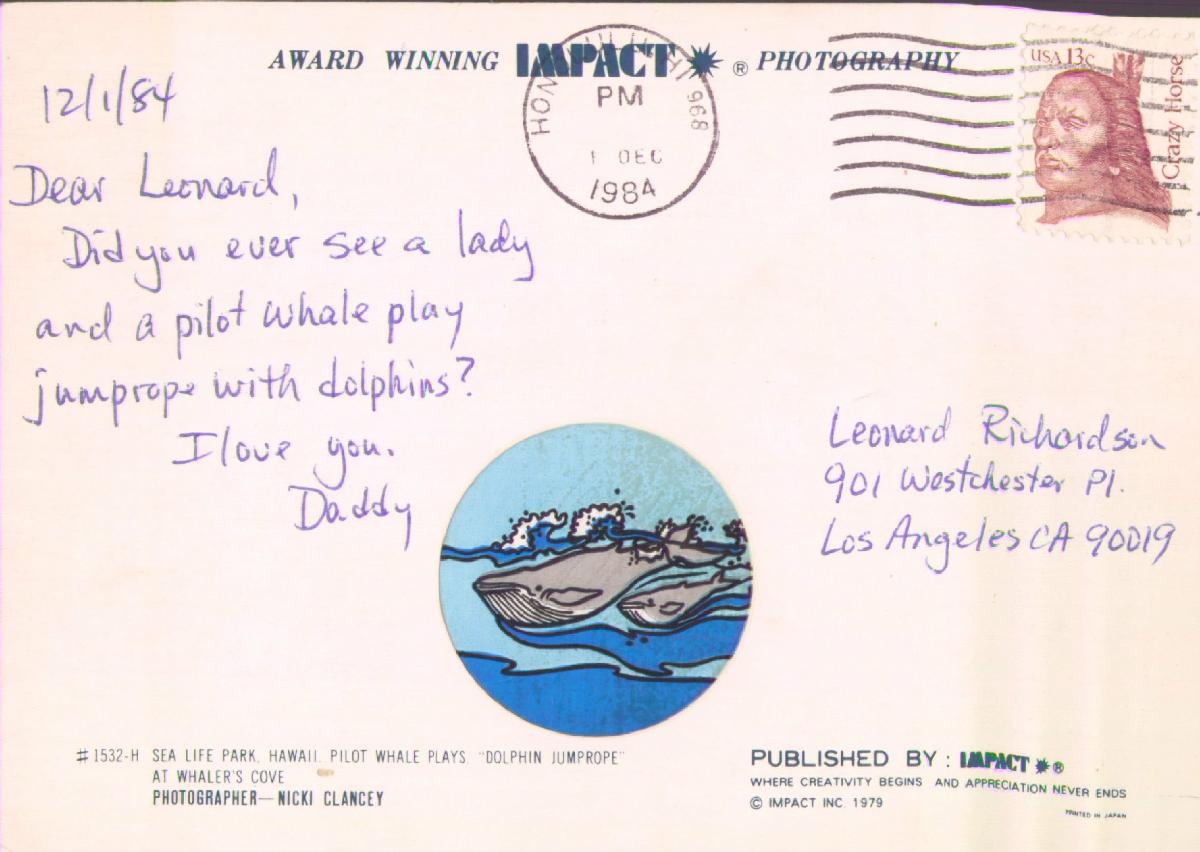 AWARD WINNING IMPACT ® PHOTOGRAPHY
HONOLULU HI 968
PM
1 DEC
1984
USA 13c
Crazy Horse
12/1/84
Dear Leonard,
Did you ever see a lady
and a pilot whale play
jumprope with dolphins?
I love you.
Daddy
Leonard Richardson
901 Westchester Pl.
Los Angeles CA 90019
#1532-H SEA LIFE PARK, HAWAII. PILOT WHALE PLAYS "DOLPHIN JUMPROPE"
AT WHALER'S COVE
PHOTOGRAPHER—NICKI CLANCEY
PUBLISHED BY: IMPACT ®
WHERE CREATIVITY BEGINS AND APPRECIATION NEVER ENDS
© IMPACT INC. 1979
PRINTED IN JAPAN